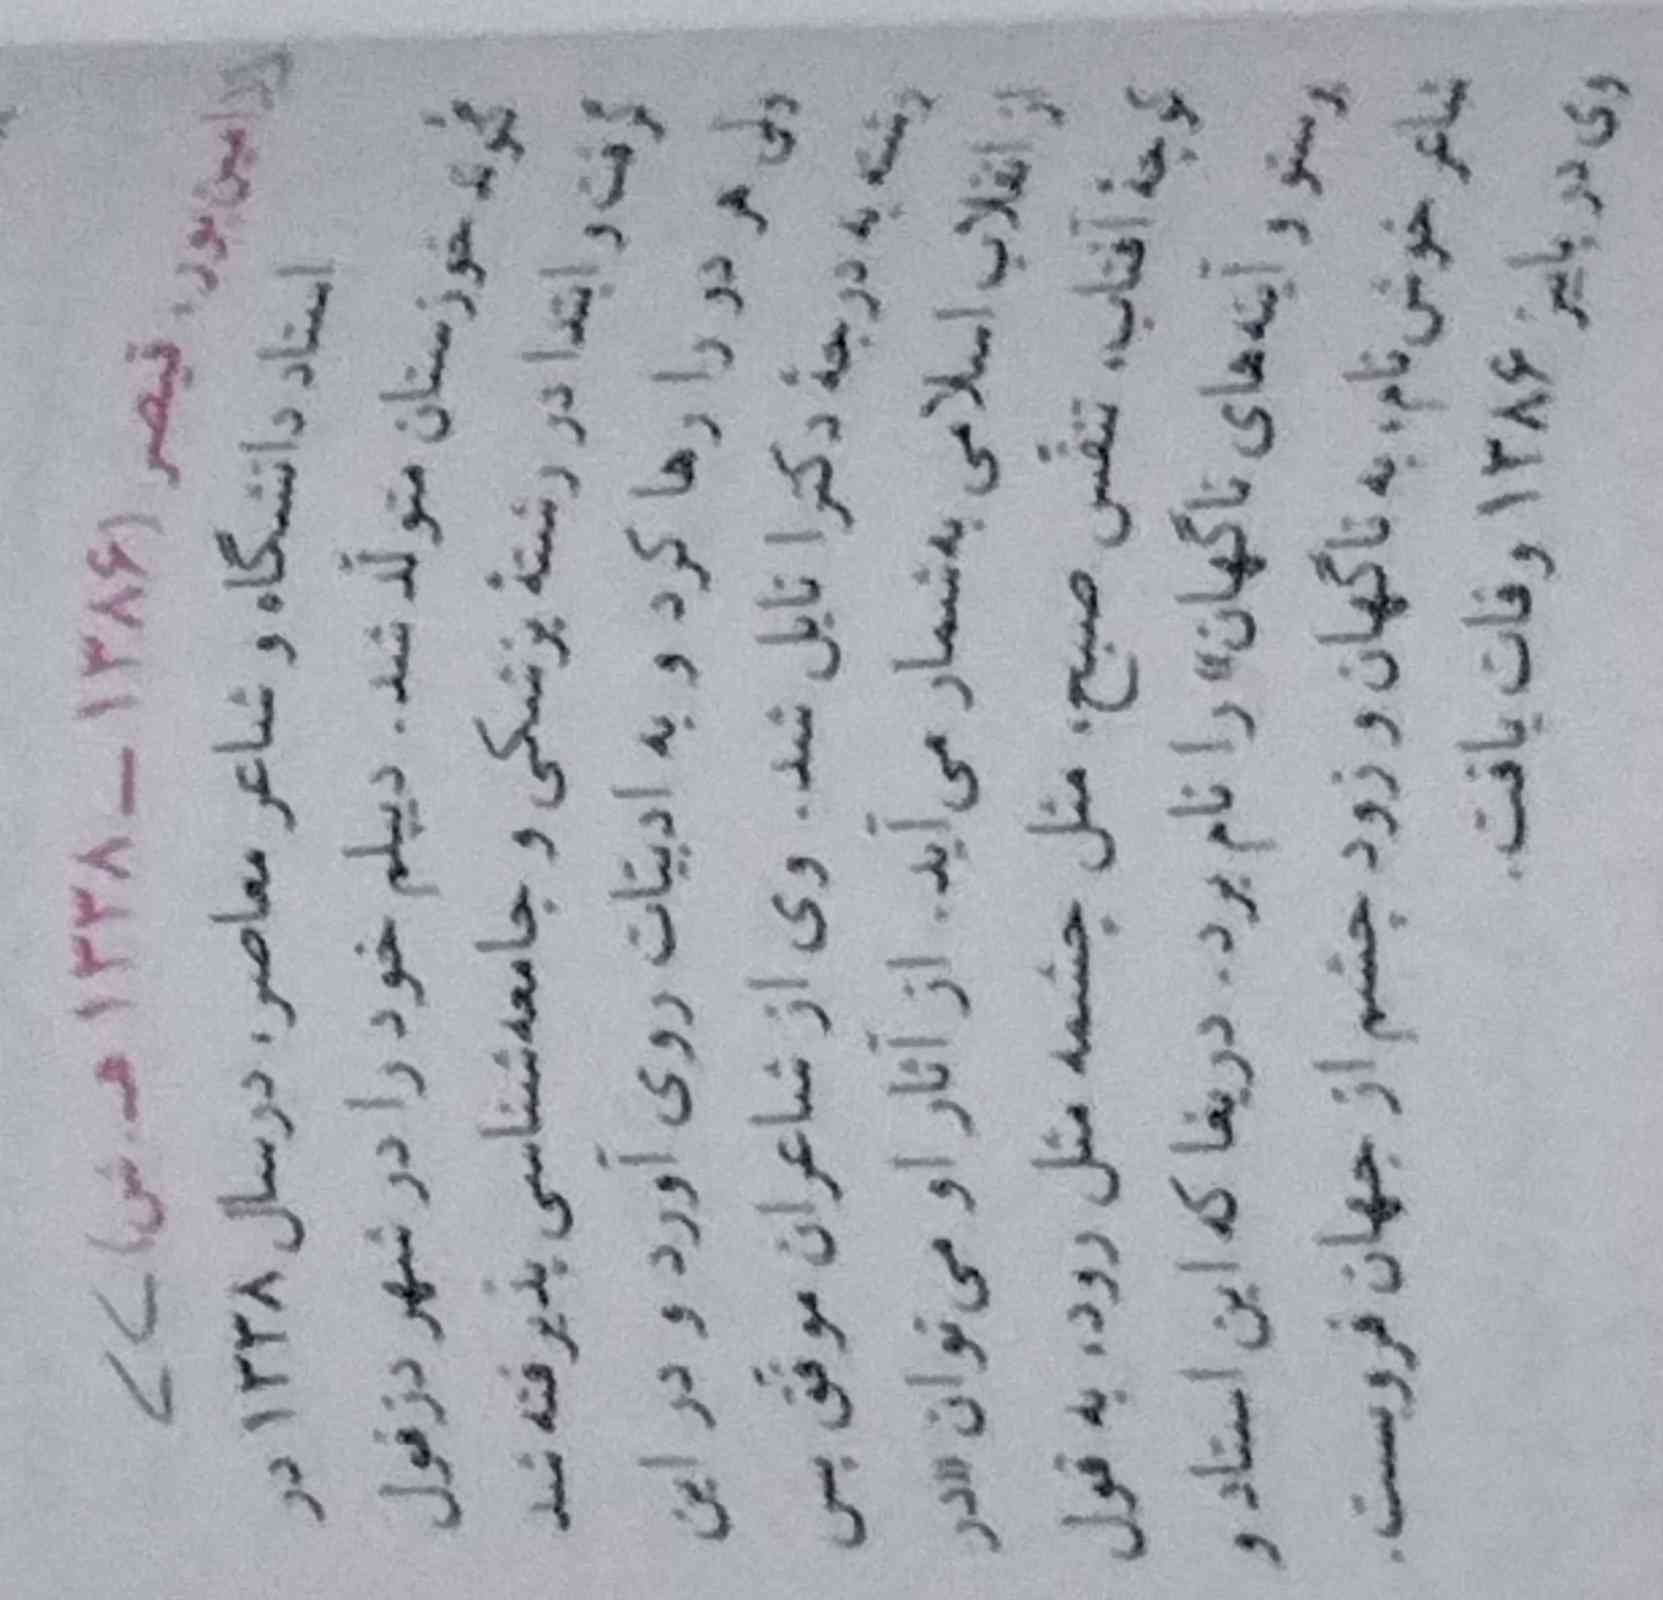 امین‌پور، قیصر (۱۳۸۶ – ۱۳۳۸ هـ.ش)
استاد دانشگاه و شاعر معاصر، در سال ۱۳۳۸ در
گوند خوزستان متولّد شد. دیپلم خود را در شهر دزفول
گرفت و ابتدا در رشتهٔ پزشکی و جامعه‌شناسی پذیرفته شد
ولی هر دو را رها کرد و به ادبیّات روی آورد و در این
رشته به درجهٔ دکترا نایل شد. وی از شاعران موفّق پس
از انقلاب اسلامی به‌شمار می‌آید. از آثار او می‌توان «در
کوچهٔ آفتاب، تنفّس صبح، مثل چشمه مثل رود، به قول
پرستو و آینه‌های ناگهان» را نام برد. دریغا که این استاد و
شاعر خوش نام، به ناگهان و زود چشم از جهان فروبست.
وی در پاییز ۱۳۸۶ وفات یافت.